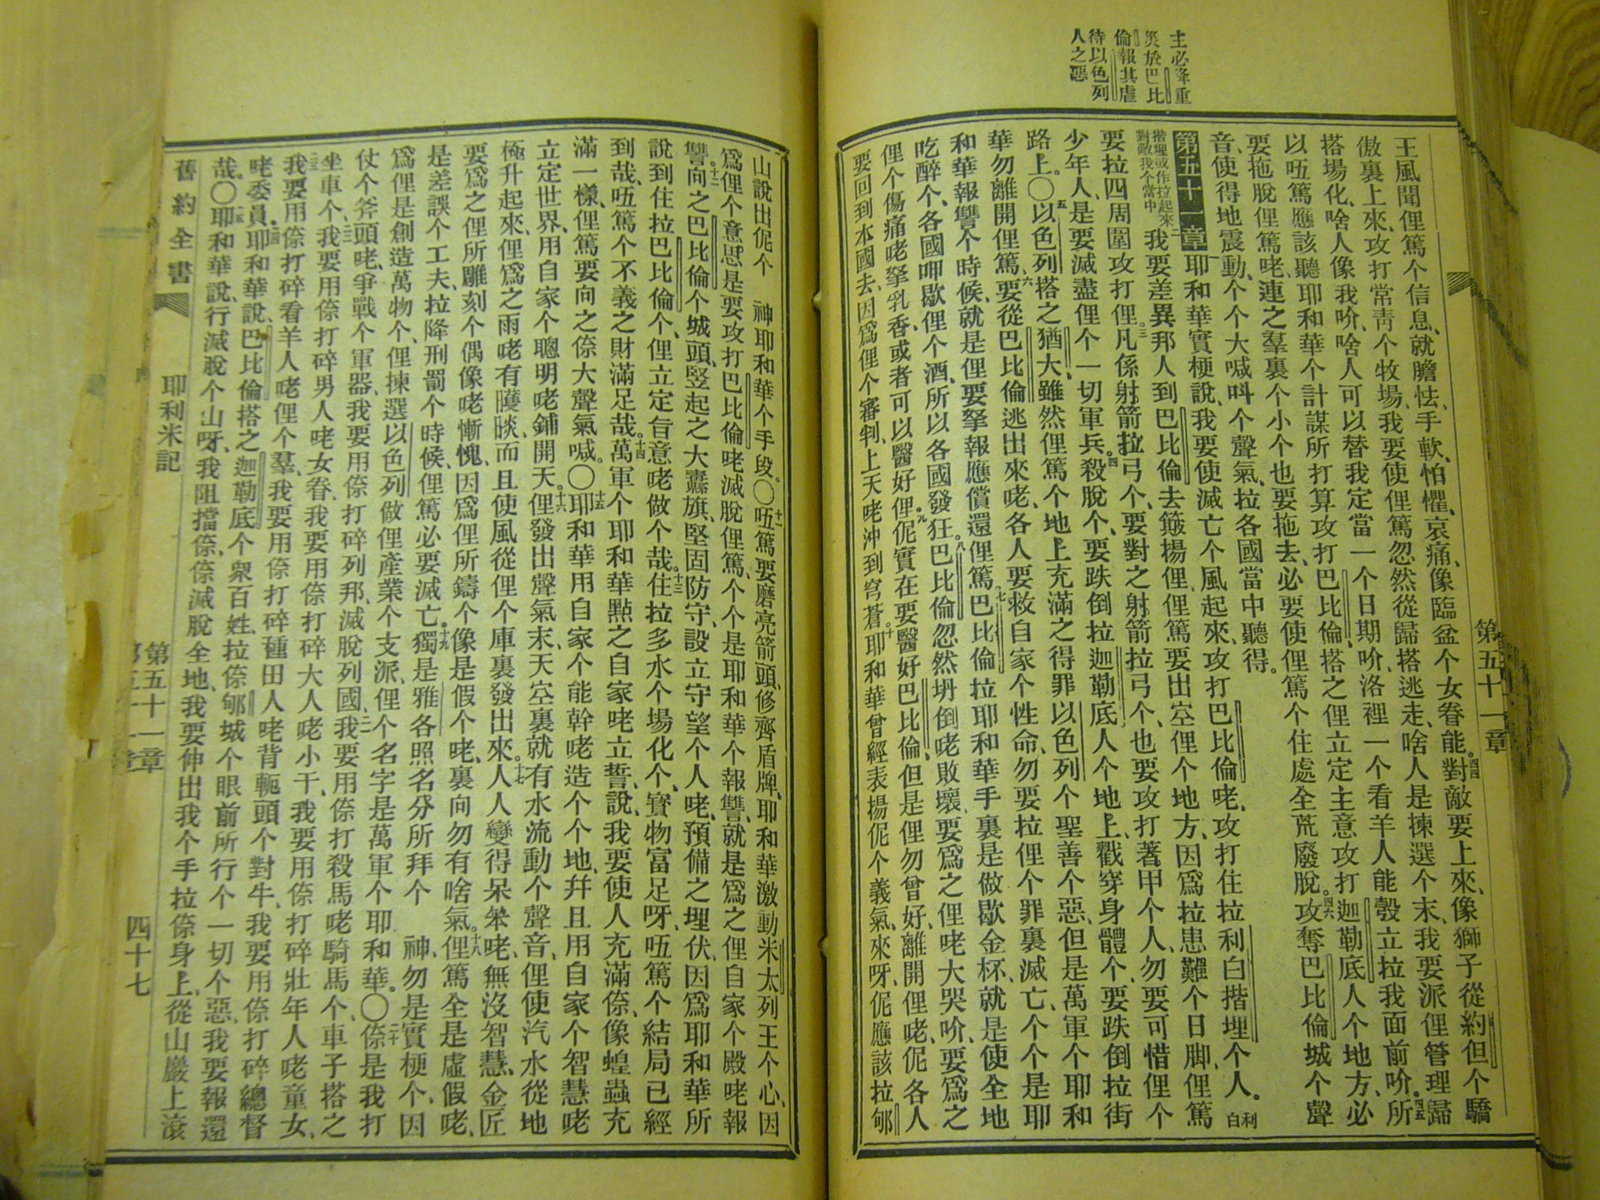 主必降重
災於巴比
倫報其虐
待以色列
人之惡
王風聞俚篤个信息、就膽怯、手軟、怕懼、哀痛、像臨盆个女眷能。對敵要上來、像獅子從約但个驕
傲裏上來、攻打常靑个牧場、我要使俚篤忽然從歸搭逃走、啥人是揀選个末、我要派俚管理歸
搭場化、啥人像我吤、啥人可以替我定當一个日期吤、洛裡一个看羊人能彀立拉我面前吤。所
以㕶篤應該聽耶和華个計謀所打算攻打巴比倫、搭之俚立定主意攻打迦勒底人个地方、必
要拖脫俚篤咾、連之羣裏个小个也要拖去、必要使俚篤个住處全荒廢脫。攻奪巴比倫城个聲
音、使得地震動、个个大喊叫个聲氣、拉各國當中聽得。
第五十一章 耶和華實梗說、我要使滅亡个風起來、攻打巴比倫咾、攻打住拉利白揩埋个人。
揩埋或作拉起來對敵我个當中 我要差異邦人到巴比倫去簸揚俚、俚篤要出空俚个地方、因爲拉患難个日脚、俚篤
要拉四周圍攻打俚。凡係射箭拉弓个、要對之射箭拉弓个、也要攻打著甲个人、勿要可惜俚个
少年人、是要滅盡俚个一切軍兵。殺脫个、要跌倒拉迦勒底人个地上、戳穿身體个、要跌倒拉街
路上。〇以色列搭之猶大、雖然俚篤个地上充滿之得罪以色列个聖善个惡、但是萬軍个耶和
華勿離開俚篤。要從巴比倫逃出來咾、各人要救自家个性命、勿要拉俚个罪裏滅亡、个个是耶
和華報讐个時候、就是俚要拏報應償還俚篤。巴比倫拉耶和華手裏是做歇金杯、就是使全地
吃醉个、各國呷歇俚个酒、所以各國發狂。巴比倫忽然坍倒咾敗壞、要爲之俚咾大哭吤、要爲之
俚个傷痛咾拏乳香、或者可以醫好俚。伲實在要醫好巴比倫、但是俚勿曾好、離開俚咾、伲各人
要回到本國去、因爲俚个審判、上天咾沖到穹蒼。耶和華曾經表揚伲个義氣、來呀、伲應該拉郇
第五十一章
山說出伲个 神耶和華个手段。〇㕶篤要磨亮箭頭、修齊盾牌、耶和華激動米太列王个心、因
爲俚个意思是要攻打巴比倫咾滅脫俚篤、个个是耶和華个報讐、就是爲之俚自家个殿咾報
讐。向之巴比倫个城頭、竪起之大纛旗、堅固防守、設立守望个人咾預備之埋伏、因爲耶和華所
說到住拉巴比倫个、俚立定旨意咾做个哉。住拉多水个場化个、寶物富足呀、㕶篤个結局已經
到哉、㕶篤个不義之財滿足哉。萬軍个耶和華點之自家咾立誓說、我要使人充滿倷、像蝗蟲充
滿一樣、俚篤要向之倷大聲氣喊。〇耶和華用自家个能幹咾造个个地、幷且用自家个智慧咾
立定世界、用自家个聰明咾鋪開天。俚發出聲氣末、天空裏就有水流動个聲音、俚使汽水從地
極升起來、俚爲之雨咾有䨥睒、而且使風從俚个庫裏發出來。人人變得呆笨咾、無沒智慧、金匠
要爲之俚所雕刻个偶像咾慚愧、因爲俚所鑄个像是假个咾、裏向勿有啥氣。俚篤全是虛假咾、
是差誤个工夫、拉降刑罰个時候、俚篤必要滅亡。獨是雅各照名分所拜个 神勿是實梗个、因
爲俚是創造萬物个、俚揀選以色列做俚產業个支派、俚个名字是萬軍个耶和華。〇倷是我打
仗个斧頭咾、爭戰个軍器、我要用倷打碎列邦、滅脫列國。我要用倷打殺馬咾騎馬个、車子搭之
坐車个、我要用倷打碎男人咾女眷、我要用倷打碎大人咾小干、我要用倷打碎壯年人咾童女、
我要用倷打碎看羊人咾俚个羣、我要用倷打碎種田人咾背軛頭个對牛、我要用倷打碎總督
咾委員。耶和華說、巴比倫搭之迦勒底个衆百姓、拉倷郇城个眼前所行个一切个惡、我要報還
哉。〇耶和華說、行滅脫个山呀、我阻擋倷、倷滅脫全地、我要伸出我个手拉倷身上、從山巖上滾
舊約全書 耶利米記 第五十一章 四十七